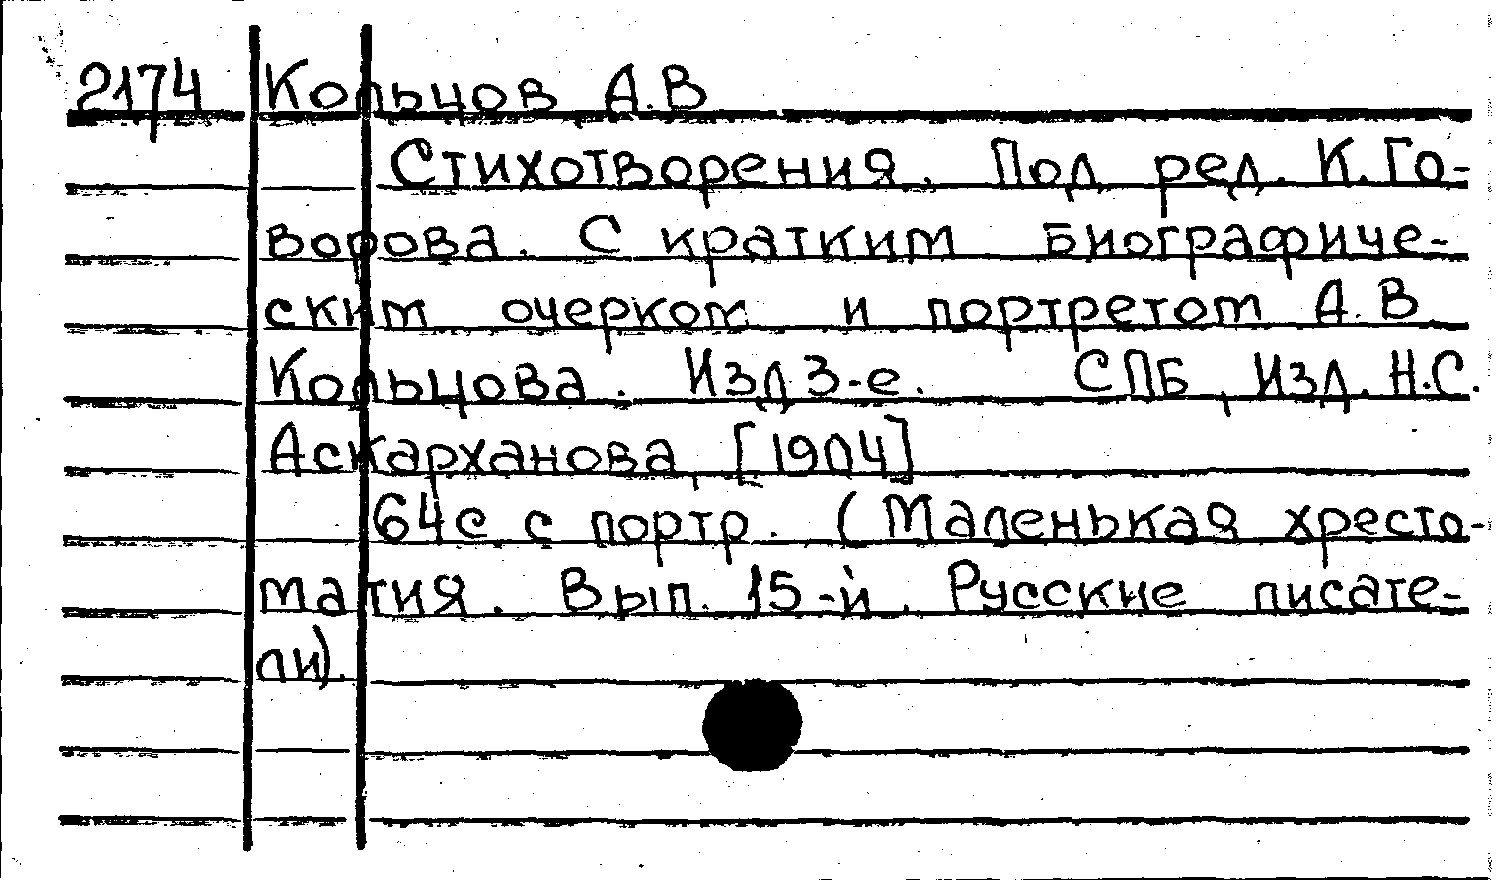 2174 Кольцов А.В
Стихотворения. Под ред. К.Го-
ворова. С кратким биографиче-
ским очерком и портретом А.В.
Кольцова. Изд 3-е. СПБ, Изд. Н.С.
Аскарханова, [1904]
64с с портр. (Маленькая хресто-
матия. Вып. 15-й. Русские писате-
ли).